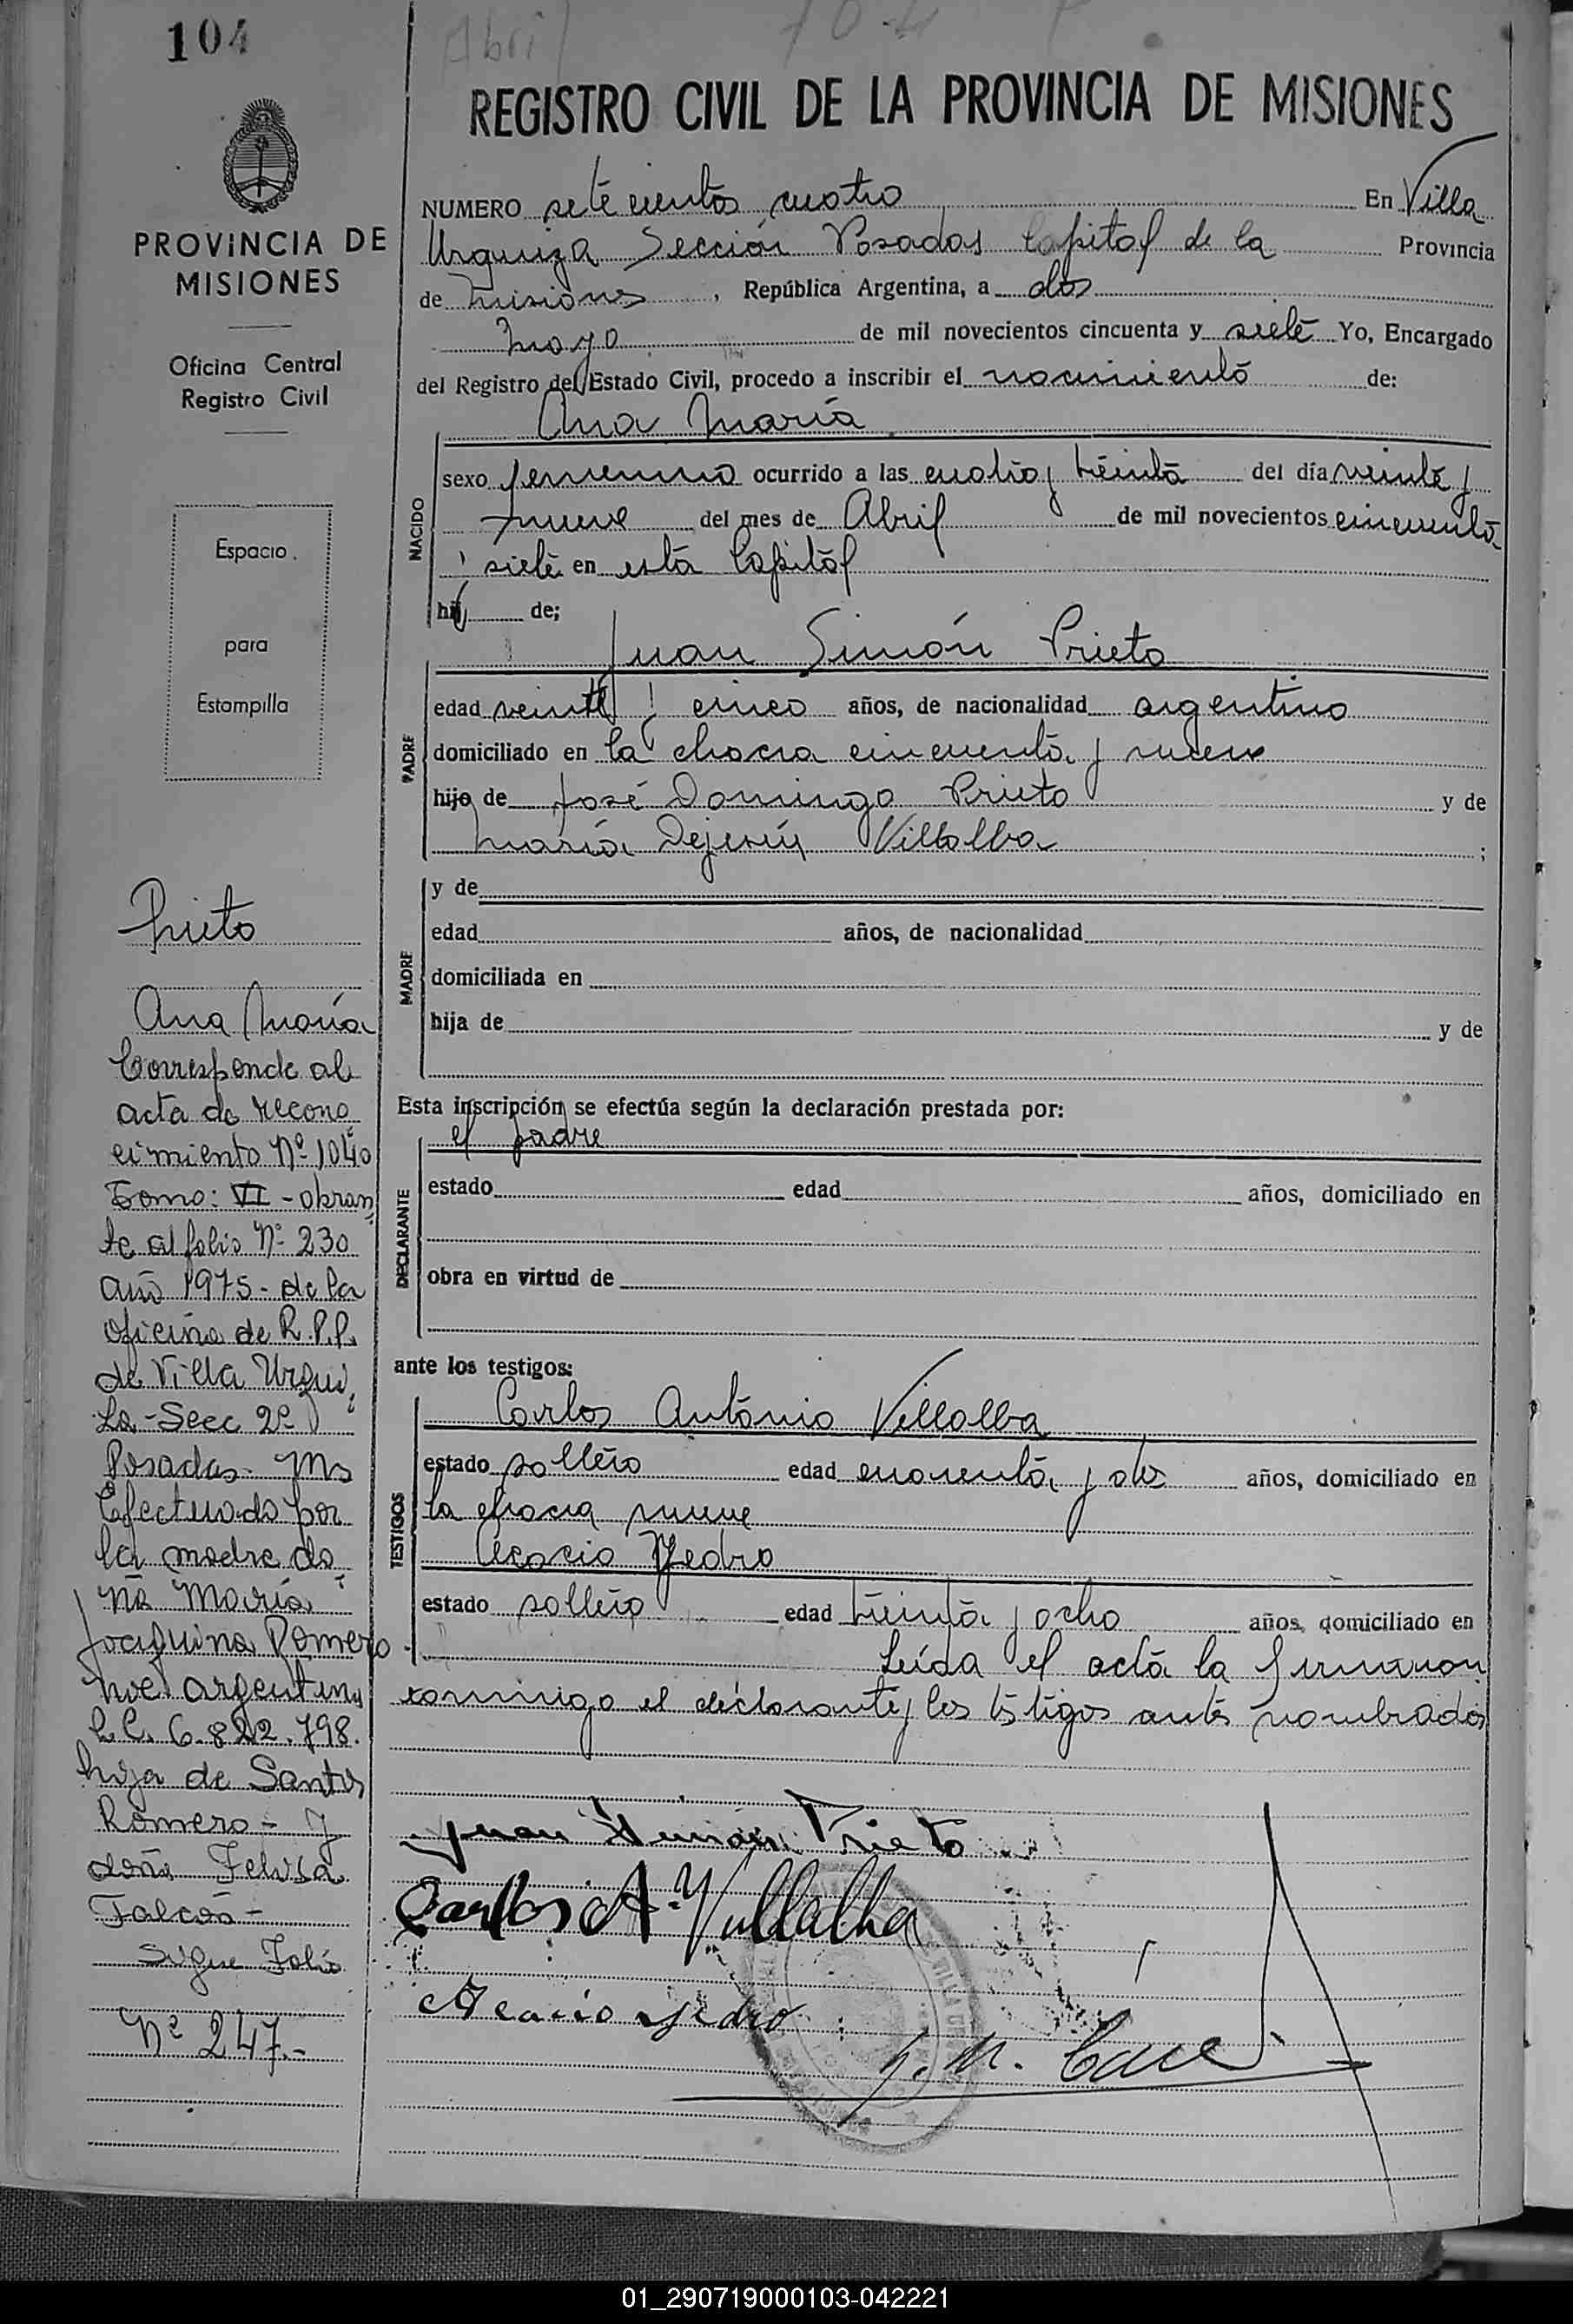 104
Abril
704
REGISTRO CIVIL DE LA PROVINCIA DE MISIONES
PROVINCIA DE
MISIONES
Oficina Central
Registro Civil
Espacio
para
Estampilla
NUMERO setecientos cuatro En Villa
Urquiza Sección Posadas Capital de la Provincia
de Misiones, República Argentina, a dos
Mayo de mil novecientos cincuenta y siete Yo, Encargado
del Registro del Estado Civil, procedo a inscribir el nacimiento de:
Ana María
NACIDO
sexo femenino ocurrido a las cuatro y treinta del día veinte y
nueve del mes de Abril de mil novecientos cincuenta
y siete en esta Capital
hij de;
Juan Simón Prieto
PADRE
edad veinte y cinco años, de nacionalidad argentino
domiciliado en la chacra cincuenta y nueve
hijo de José Domingo Prieto y de
María Dejesús Villalba;
MADRE
y de
edad años, de nacionalidad
domiciliada en
hija de y de
Esta inscripción se efectúa según la declaración prestada por:
el padre
DECLARANTE
estado edad años, domiciliado en
obra en virtud de
ante los testigos:
Carlos Antonio Villalba
TESTIGOS
estado soltero edad cuarenta y dos años, domiciliado en
la chacra nueve
Acacio Yedro
estado soltero edad treinta y ocho años, domiciliado en
Leída el acta la firmaron
conmigo el declarante y los testigos antes nombrados
Juan Simón Prieto
Carlos A. Villalba
Acacio Yedro
Prieto
Ana María
Corresponde al
acta de recono
cimiento Nº 1040
Tomo: VI - obran
te al folio Nº 230
año 1975 - de la
oficina de R.P.P.
de Villa Urqui
za - Secc 2ª
Posadas - Ms
Efectuado por
la madre do
ña María
Joaquina Romero
nac. argentina
L.C. 6.822.798.
hija de Santos
Romero - y
doña Felisa
Falcón -
Sigue Folio
Nº 247.-
01_290719000103-042221